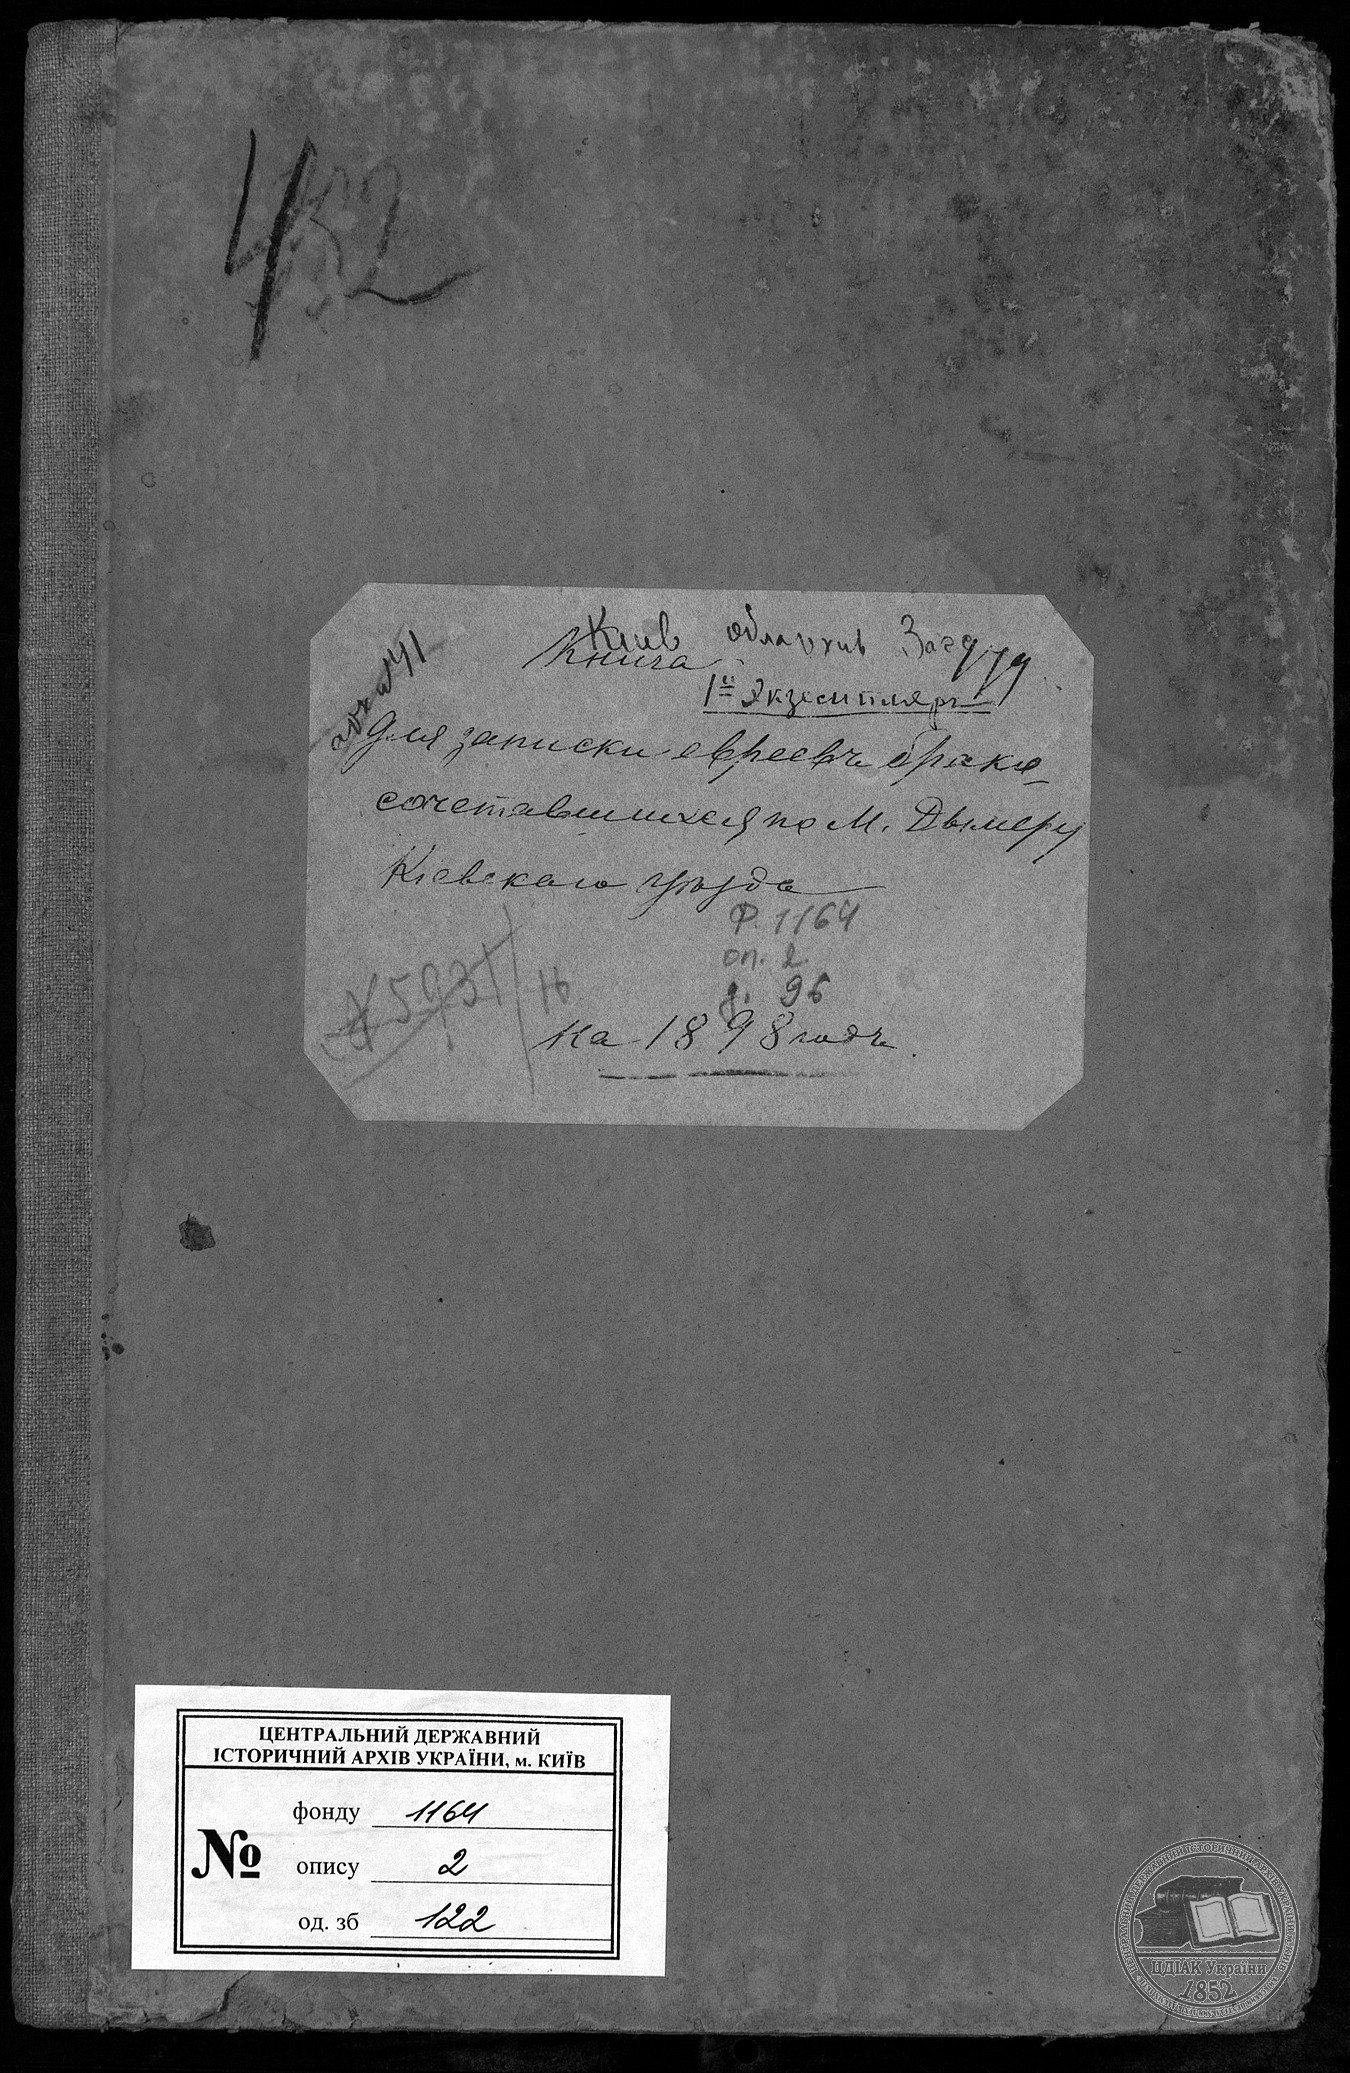 432
Киів облархив
Книга
1й экземпляръ
для записки евреевъ брако-
сочетавшихся по М. Дымеру
Кіевскаго уѣзда
Ф. 1164
оп. 2.
д. 96
№ 5931/16
на 1898 годъ
ЦЕНТРАЛЬНИЙ ДЕРЖАВНИЙ
ІСТОРИЧНИЙ АРХІВ УКРАЇНИ, м. КИЇВ
№
фонду 1164
опису 2
од. зб 122
ЦДІАК України
1852